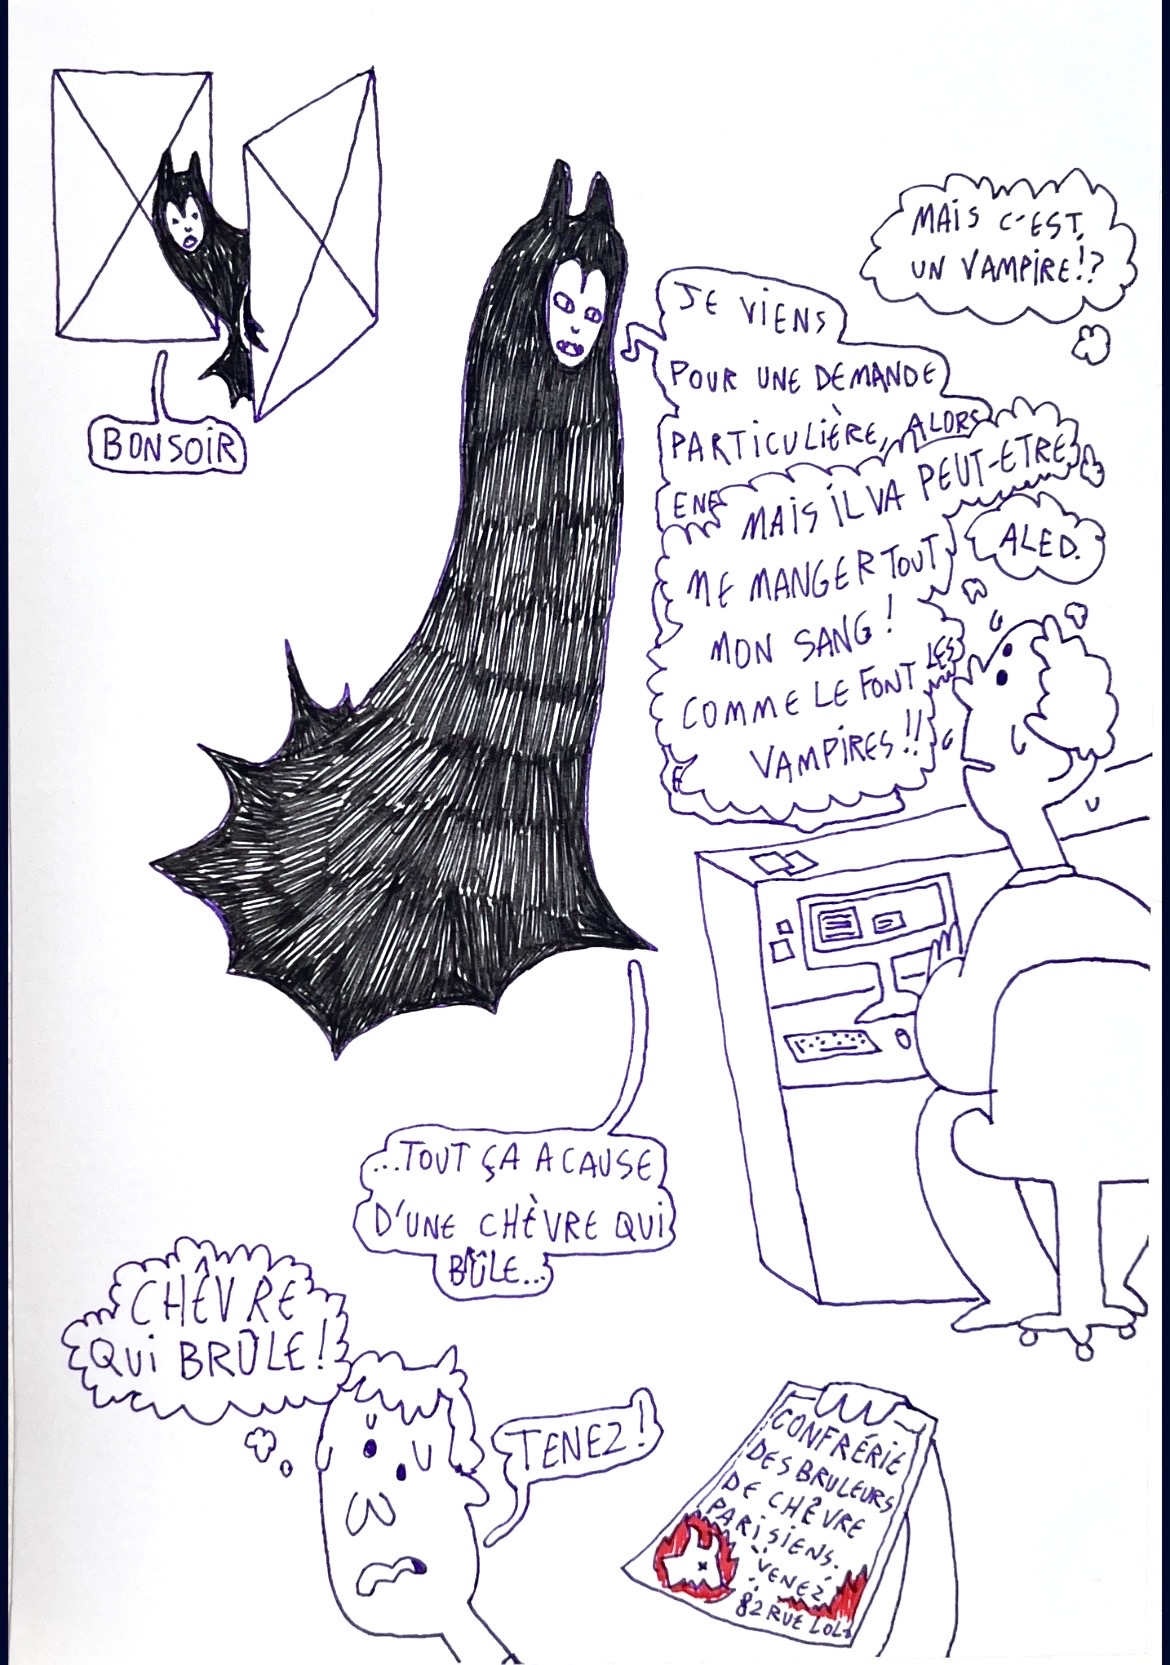 BONSOIR
MAIS C'EST
UN VAMPIRE!?
JE VIENS
POUR UNE DEMANDE
PARTICULIÈRE, ALORS
MAIS iL VA PEUT-ETRE
ME MANGER TOUT
MON SANG!
COMME LE FONT LES
VAMPIRES!!
ALED.
...TOUT ÇA A CAUSE
D'UNE CHÈVRE QUI
BÛLE...
CHÊVRE
QUI BRÛLE!
TENEZ!
CONFRÉRIE
DES BRULEURS
DE CHÊVRE
PARISIENS.
VENEZ
82 RUE LOLO